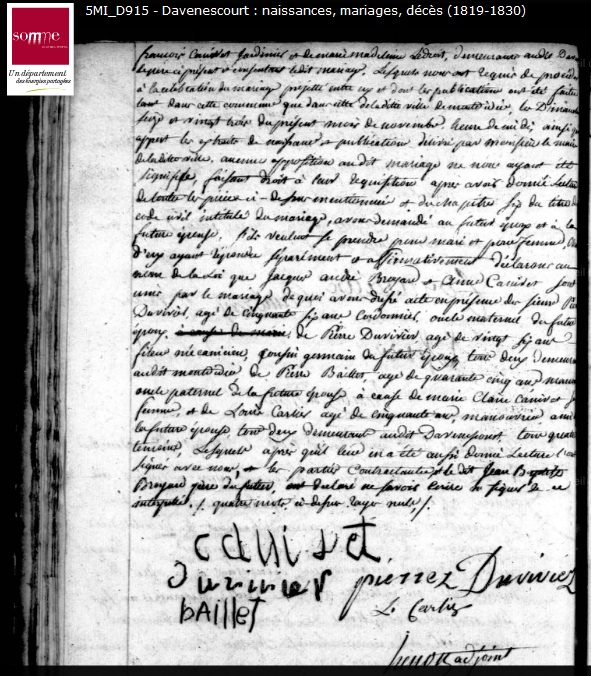 5MI_D915 - Davenescourt : naissances, mariages, décès (1819-1830)
somme
Un département
des énergies partagées
françois Canivet Jardinier et de marie madeleine Ledroit, demeurant audit Dav
cy présent et consentant ledit mariage. Lesquels nous ont requis de procéder
à la célébration du mariage projetté entre eux et dont les publications ont été faites
tant dans cette commune que dans celle de la ditte ville de montdidier, les Dimanches
seize et vingt trois du présent mois de novembre, heure de midi, ainsi qu
appert les extraits de naissance et publication délivré par monsieur le maire
de la ditte ville, aucune opposition audit mariage ne nous ayant été
signifiée, faisant droit à leur réquisition, après avoir donné lecture
de toute les pièces ci-dessus mentionnées et du chapitre six du titre du
code civil intitulé du mariage, avons demandé au futur époux et à la
future épouse, s'ils veulent se prendre pour mari et pour femme, Ch
d'eux ayant répondu séparément et affirmativement, déclarons au
nom de la Loi que Jacques andré Broyard et Anne Canivet sont
unis par le mariage. de quoi avons dressé acte en présence des sieurs Pierre
Duvivier, agé de cinquante six ans cordonnier, oncle maternel du futur
époux à cause de marie, de Pierre Duvivier agé de vingt six ans
fileur mécanicien, cousin germain du futur époux, tous deux demeurant
audit montdidier de Pierre Baillet, agé de quarante cinq ans, manou
oncle paternel de la future épouse à cause de marie Claire Canivet s
femme, et de Louis Carlier agé de cinquante ans, manouvrier ami
la future épouse tous deux demeurant audit Davenescourt, tous quatre
témoins Lesquels après qu'il leur en a été aussi donné Lecture l'ont
signer avec nous, et les parties contractantes et le dit Jean Baptiste
Broyard père du futur, ont déclaré ne savoir écrire ni signer de ce
interpellé ./. quatre mots ci-dessus rayé nuls ./.
cauivet
Duvivier pierre Duvivier
bAilleT Ls Carlier
adjoint